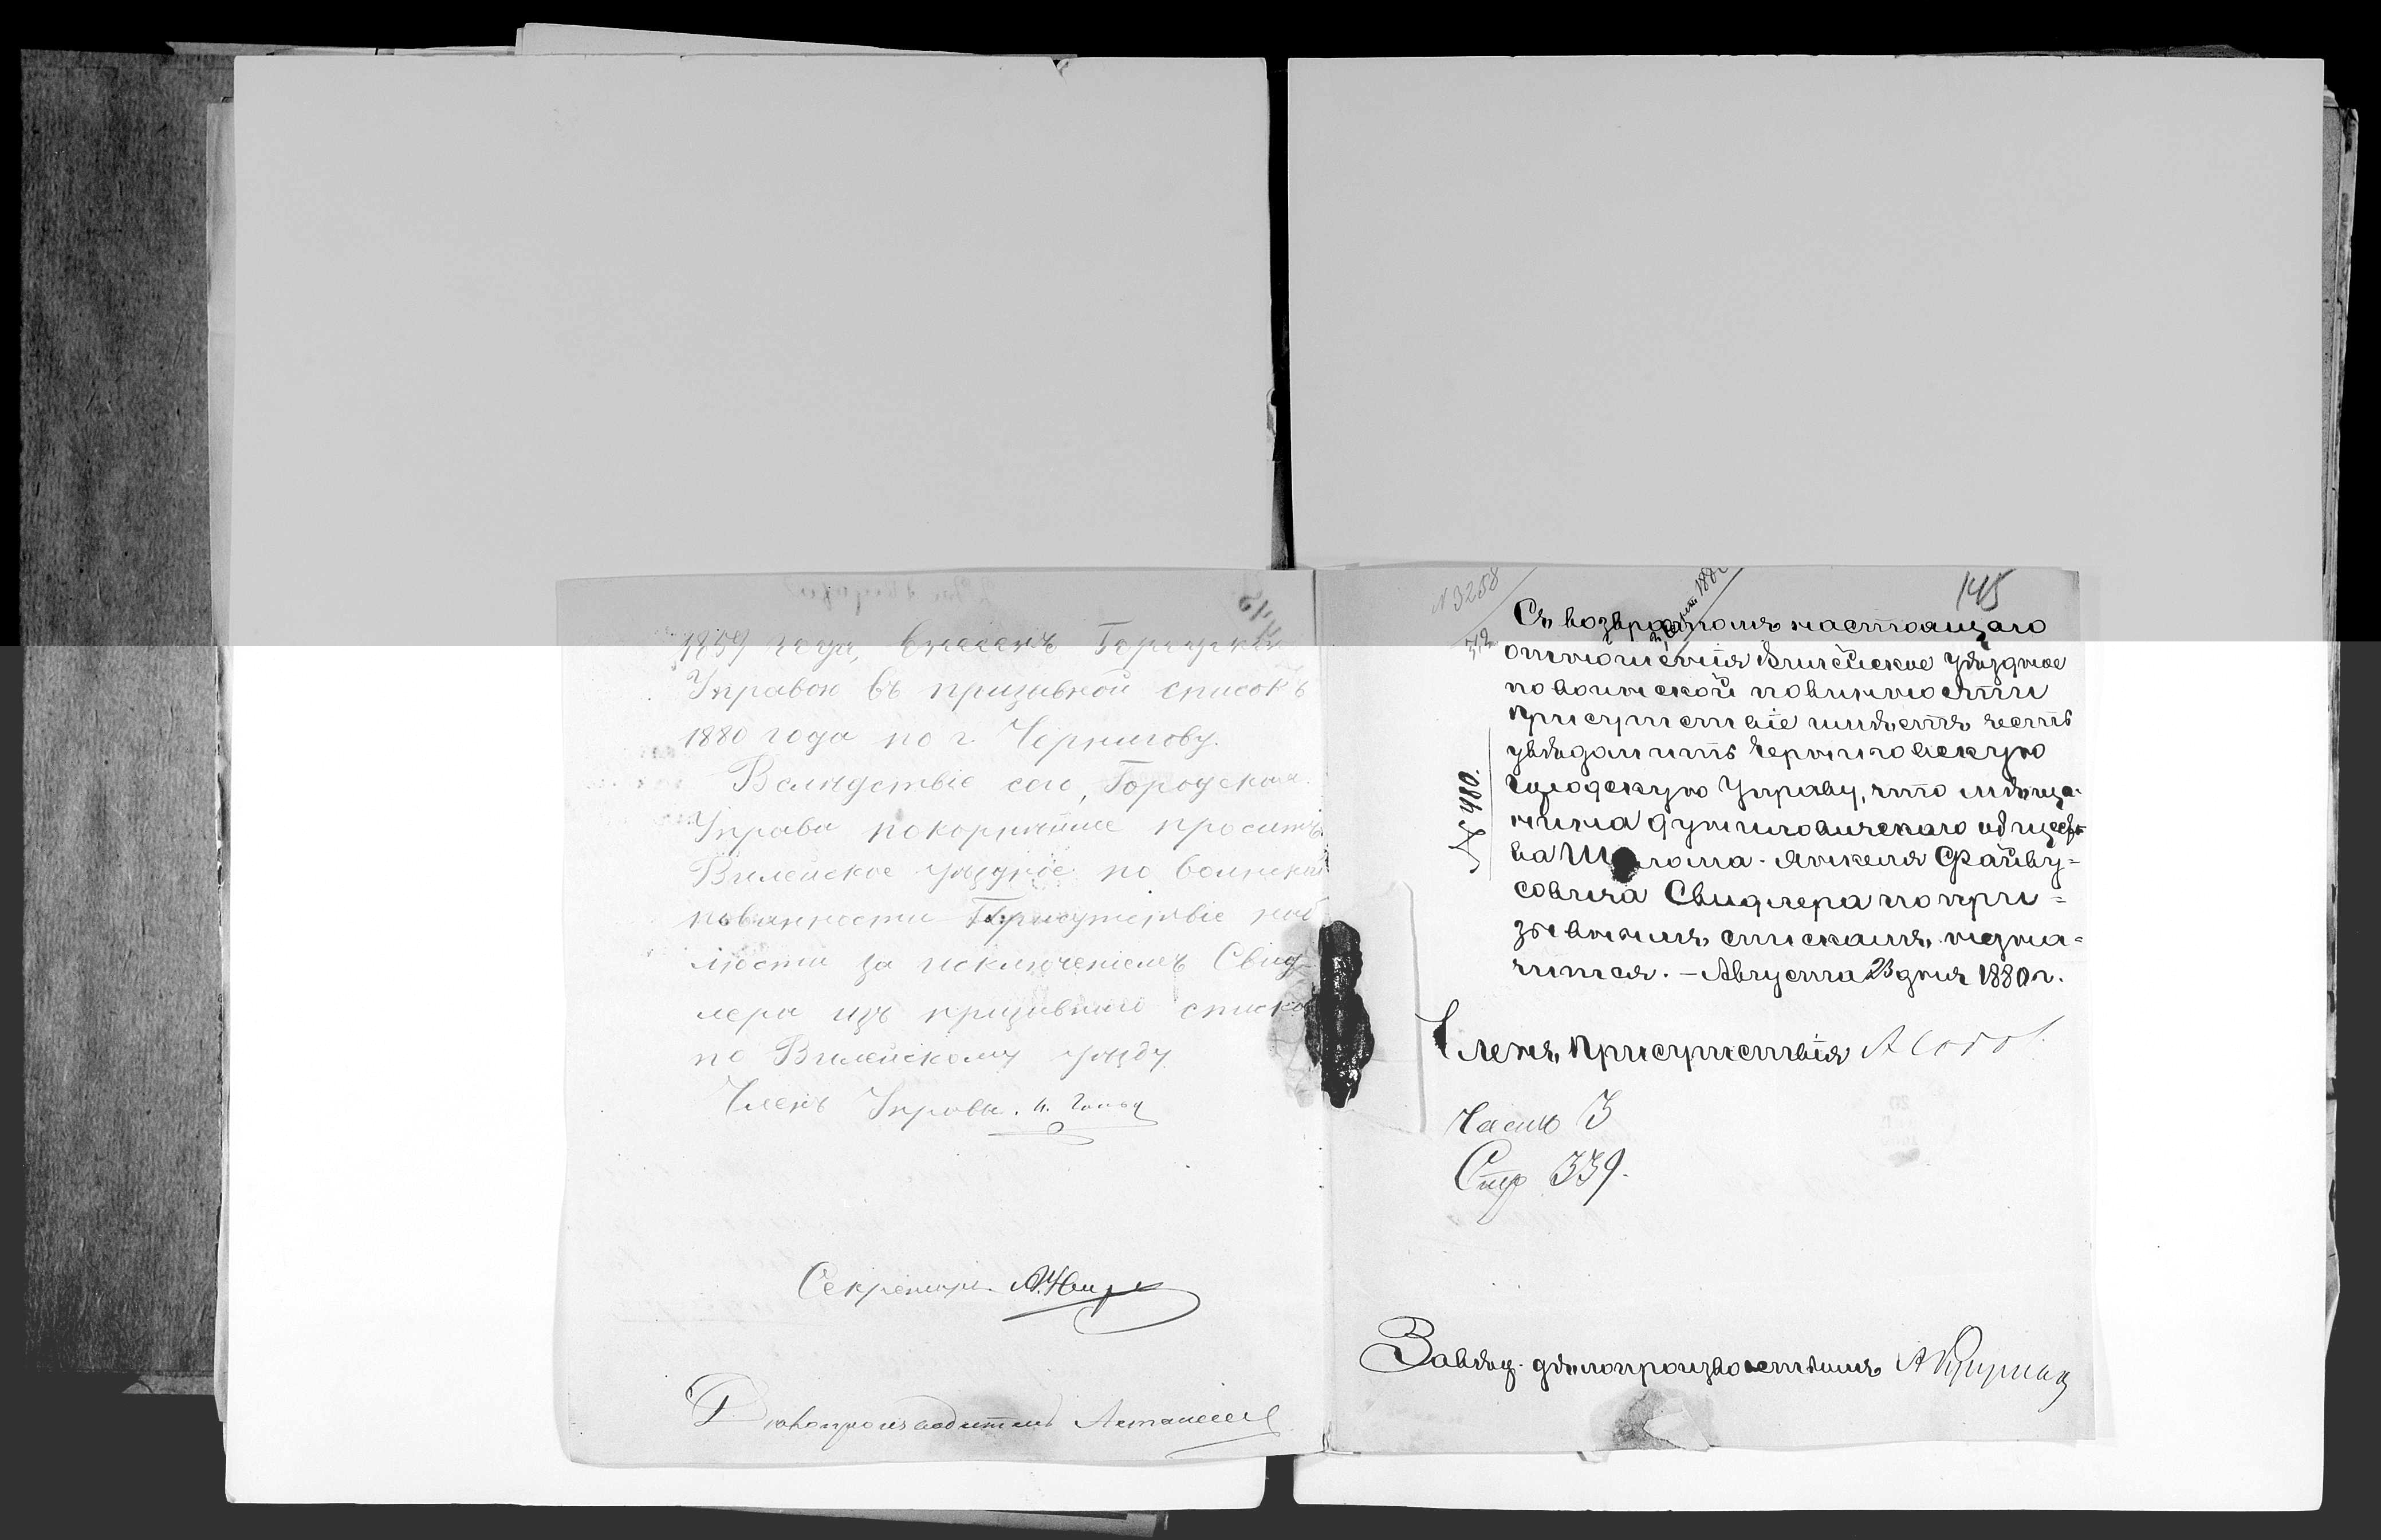 1859 года, внесенъ Городскою
Управою въ призывной списокъ
1880 года по г. Чернигову.
Вслѣдствіе сего, Городская
Управа покорнѣйше проситъ
Вилейское уѣздное по воинской
повинности Присутствіе
за исключеніемъ Свид-
лера изъ призывнаго списка
по Вилейскому уѣзду.
Членъ Управы.
Секретарь
Дѣлопроизводитель
N 3258
312
145
Съ возвратомъ настоящаго
отношенія Вилейское уѣздное
по воинской повинности
Присутствіе имѣетъ честь
увѣдомить Черниговскую
Городскую Управу, что мѣща-
нина Дуниловичскаго общест-
ва Шолома-Янкеля Файву-
совича Свидлера по при-
зывнымъ спискамъ незна-
чится. – Августа 23 дня 1880 г.
№ 480.
Членъ Присутствія
Часть 3
Стр 339.
Завѣд. дѣлопроизводствомъ